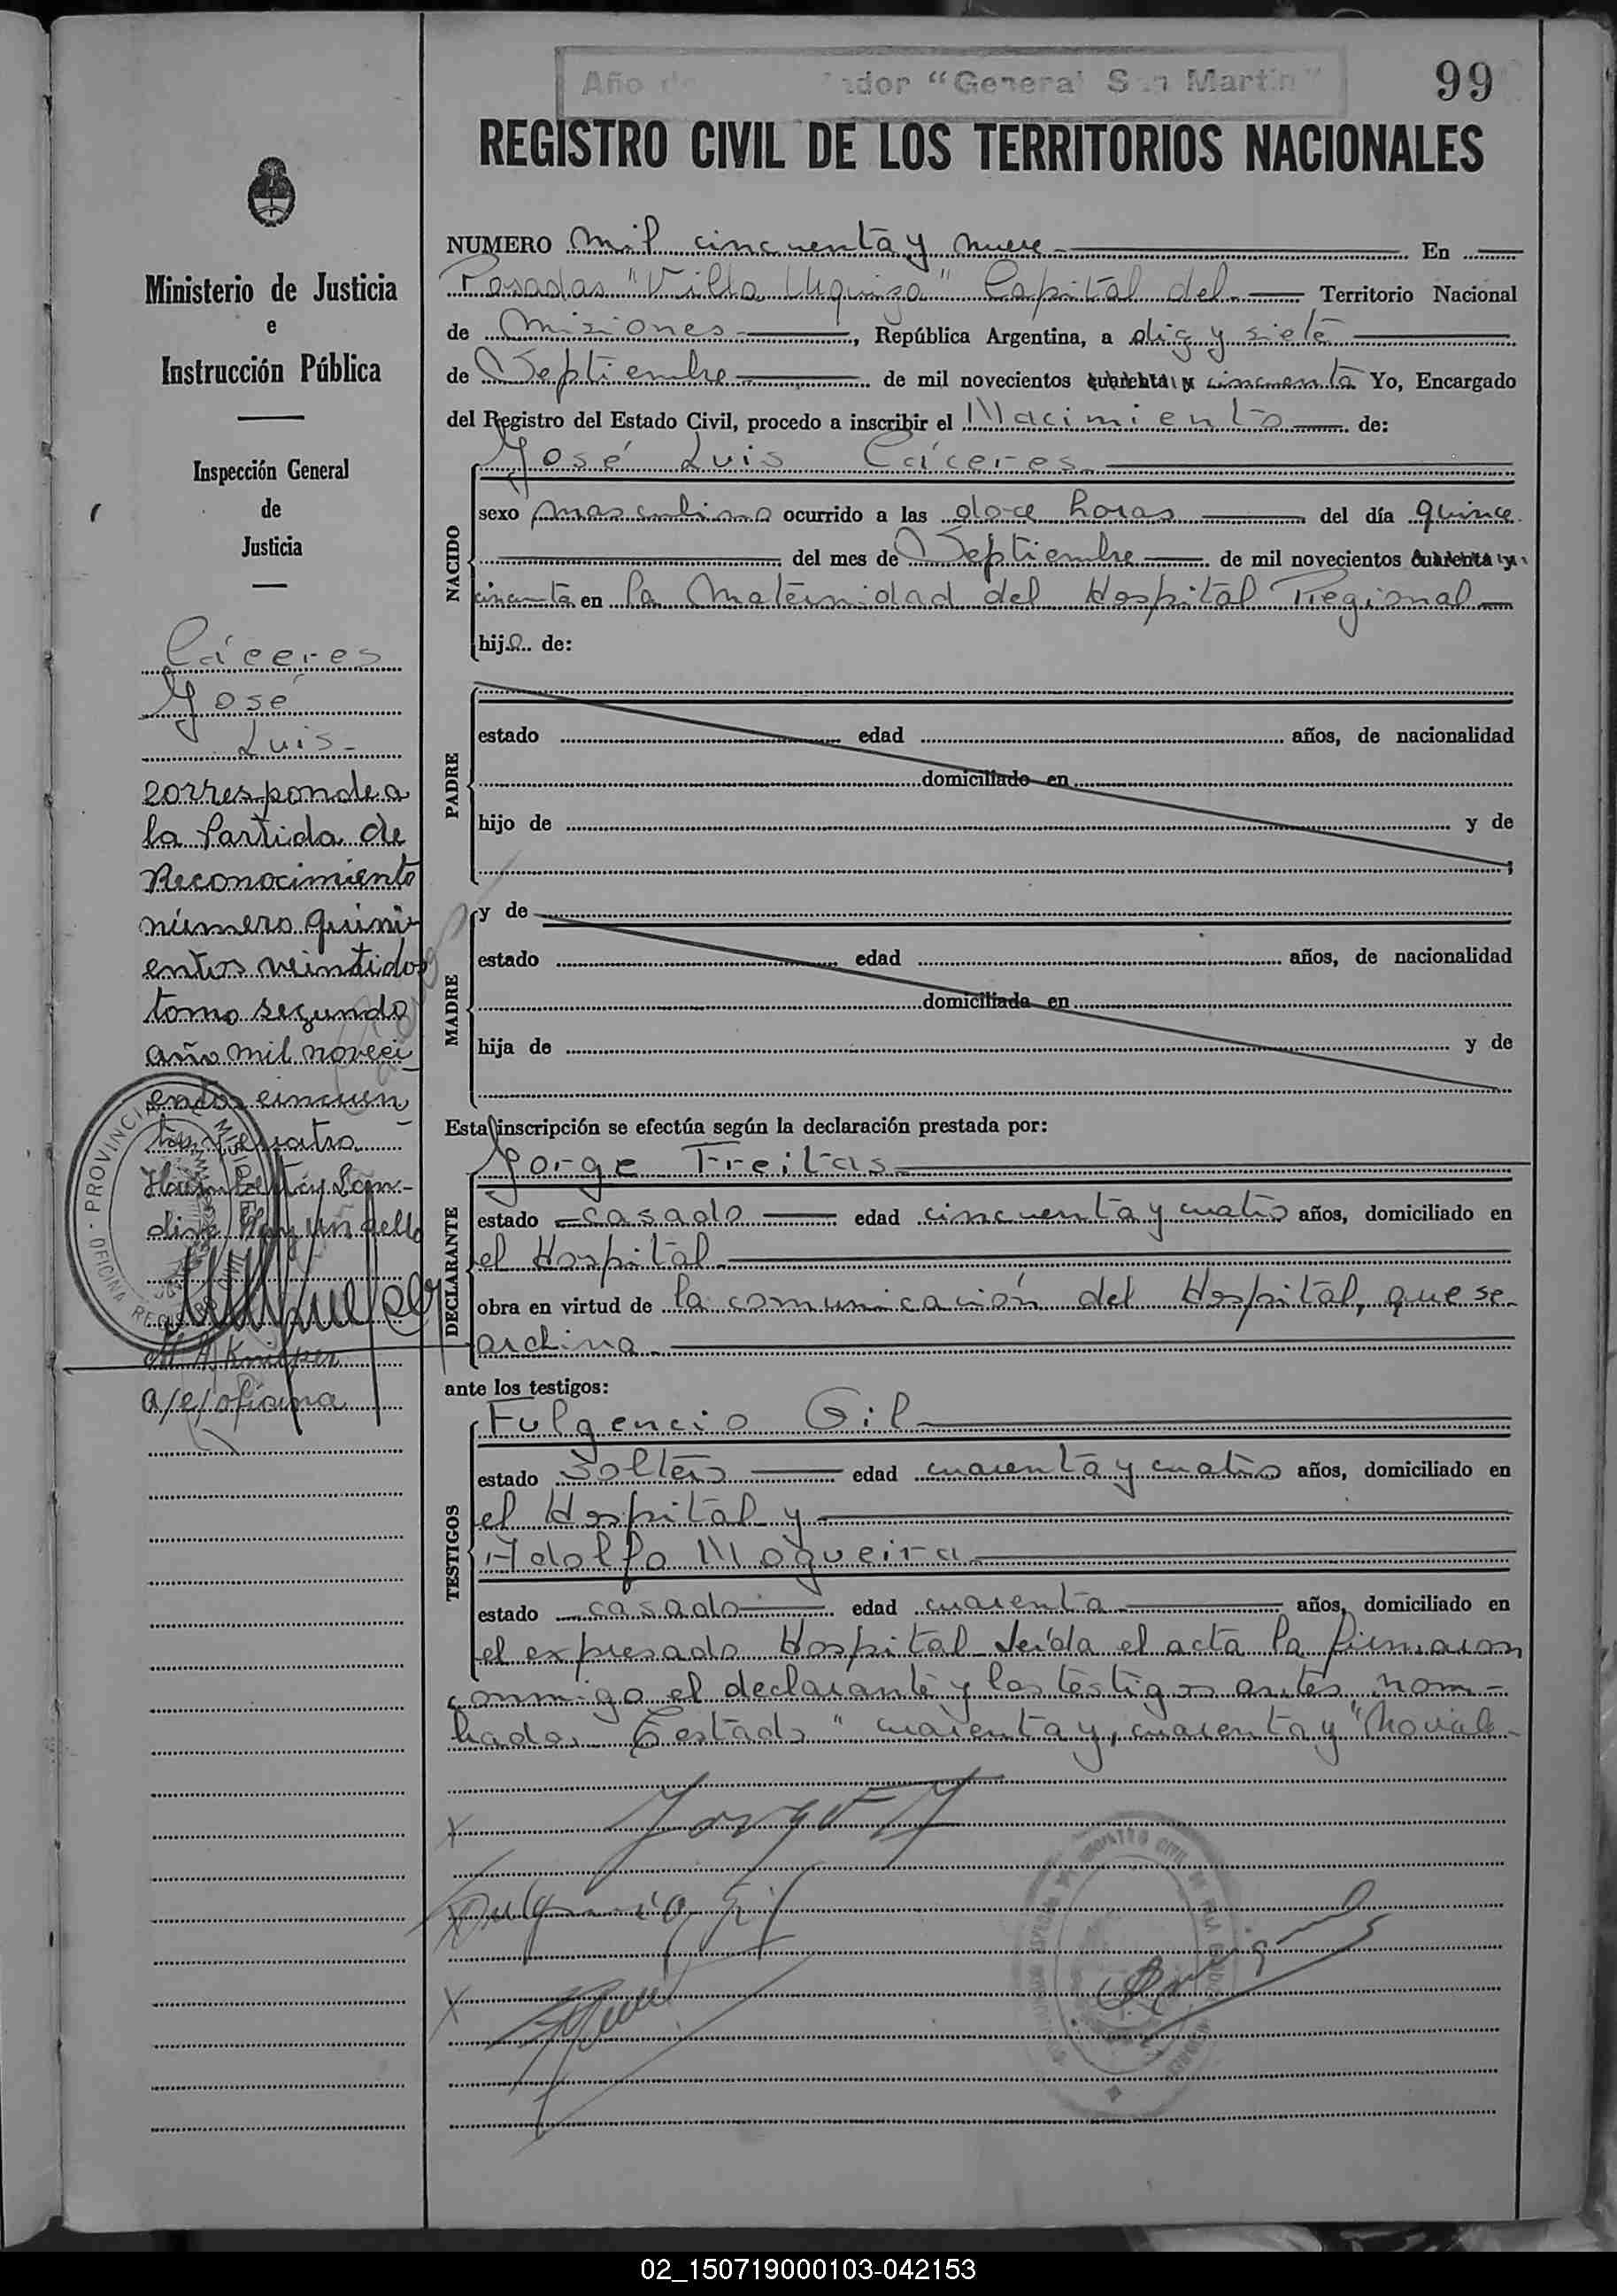 Año de ador "General San Martín"
99
REGISTRO CIVIL DE LOS TERRITORIOS NACIONALES
Ministerio de Justicia
e
Instrucción Pública
Inspección General
de
Justicia
Cáceres
José
Luis-
corresponde a
la Partida de
Reconocimiento
número quini-
entos veintidos
tomo segundo
año mil noveci
entos cincuen
ta y cuatro
hay un sello
M. A. Knieper
a/e/oficina
PROVINCIA MISIONES - OFICINA REGISTRO CIVIL
NUMERO mil cincuenta y nueve En
Posadas "Villa Urquiza" Capital del Territorio Nacional
de Misiones, República Argentina, a diez y siete
de Septiembre de mil novecientos cuarenta y cincuenta Yo, Encargado
del Registro del Estado Civil, procedo a inscribir el Nacimiento de:
NACIDO
José Luis Cáceres
sexo masculino ocurrido a las doce horas del día quince
del mes de Septiembre de mil novecientos cuarenta y
cincuenta en la Maternidad del Hospital Regional
hijo de:
PADRE
estado edad años, de nacionalidad
domiciliado en
hijo de y de
;
MADRE
y de
estado edad años, de nacionalidad
domiciliada en
hija de y de
Esta inscripción se efectúa según la declaración prestada por:
DECLARANTE
Jorge Freitas
estado casado edad cincuenta y cuatro años, domiciliado en
el Hospital
obra en virtud de la comunicación del Hospital, que se
archiva
ante los testigos:
TESTIGOS
Fulgencio Gil
estado soltero edad cuarenta y cuatro años, domiciliado en
el Hospital y
Adolfo Nogueira
estado casado edad cuarenta años, domiciliado en
el expresado Hospital Leída el acta la firmaron
conmigo el declarante y los testigos antes nom-
brados. Testado "cuarenta y, cuarenta y" No vale
Fulgencio Gil
02_150719000103-042153